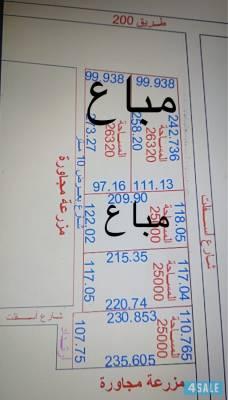 طريق 200
99.938
99.938
مباع
273.27
المساحة
26320
258.20
المساحة
26320
242.736
97.16
111.13
209.90
مباع
122.02
المساحة
25000
118.05
شارع بعرض 10 متر
مزرعة مجاورة
شارع أسفلت
215.35
117.05
المساحة
25000
117.04
220.74
230.853
شارع أسفلت
107.75
المساحة
25000
110.765
235.605
مزرعة مجاورة
4SALE